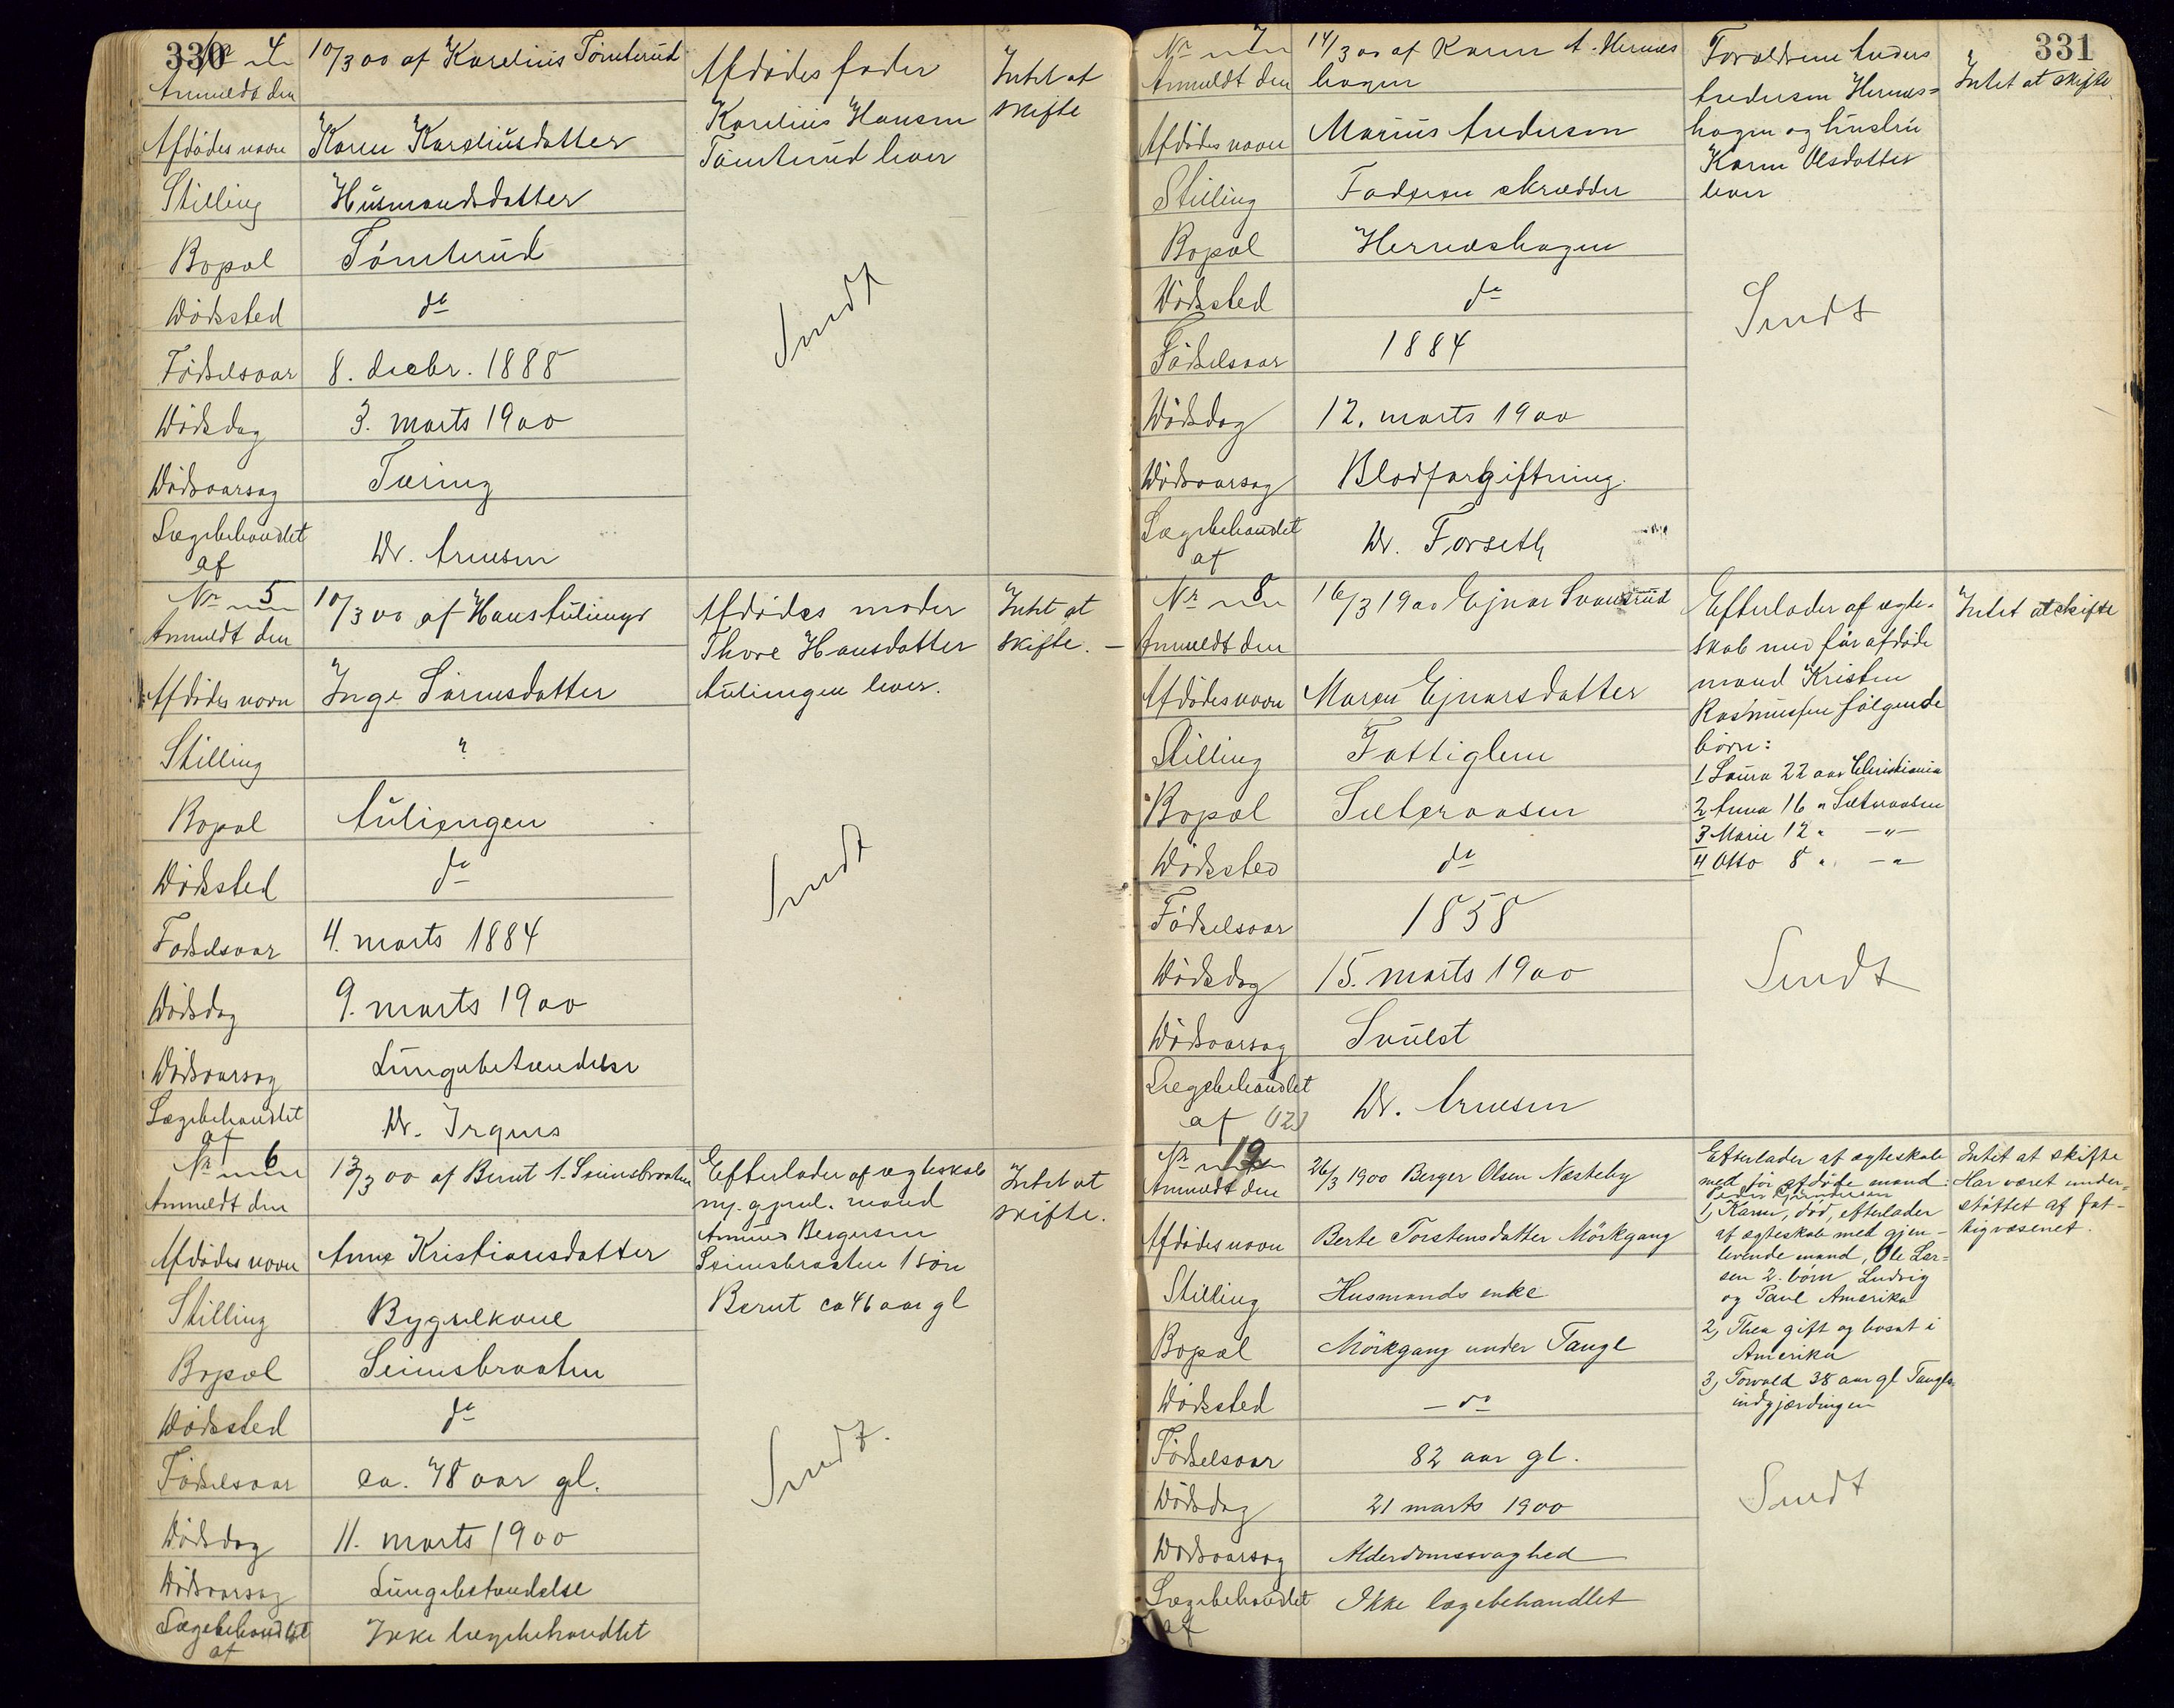 330
Nr 4
10/3 00 af Karelius Tömterud
Anmeldt den
Afdödes navn Karen Kareliusdatter
Stilling Husmandsdatter
Bopæl Tömterud
Dödssted do
Födselsaar 8. decbr. 1888
Dödsdag 3. marts 1900
Dödsaarsag Tæring
Lægebehandlet
af Dr. Arnesen
Afdödes fader
Karelius Hansen
Tömterud lever
Sendt
Intet at
skifte
Nr 5
10/3 00 af Hans
Anmeldt den
Afdödes navn Inga Sörensdatter
Stilling "
Bopæl Auliengen
Dödssted do
Födselsaar 4. marts 1884
Dödsdag 9. marts 1900
Dödsaarsag Lungebetændelse
Lægebehandlet
af Dr. Irgens
Afdödes moder
Thore Hansdatter
Auliengen lever.
Sendt
Intet at
skifte. —
Nr 6
13/3 00 af Bernt A. Seimsbraaten
Anmeldt den
Afdödes navn Anne Kristiansdatter
Stilling Bygselkone
Bopæl Seimsbraaten
Dödssted do
Födselsaar ca. 78 aar gl.
Dödsdag 11. marts 1900
Dödsaarsag Lungebetændelse
Lægebehandlet
af Ikke lægebehandlet
Efterlader af ægteskab
m. gjenl. mand
Bergersen
Seimsbraaten 1 sön
Bernt ca 46 aar gl
Sendt.
Intet at
skifte.
331
Nr 7
14/3 00 af Karen A. Hernes
Anmeldt den hagen
Afdödes navn Marius Andersen
Stilling Faderen skrædder
Bopæl Herneshagen
Dödssted do
Födselsaar 1884
Dödsdag 12. marts 1900
Dödsaarsag Blodforgiftning.
Lægebehandlet
af Dr. Forseth
Forældrene Anders
Andersen Hernes=
hagen og hustru
Karen Olsdatter
lever
Sendt
Intet at skifte
Nr 8
16/3 1900 Ejnar Svensrud
Anmeldt den
Afdödes navn Maren Ejnarsdatter
Stilling Fattiglem
Bopæl Sæteraasen
Dödssted do
Födselsaar 1858
Dödsdag 15. marts 1900
Dödsaarsag Svulst
Lægebehandlet
af Dr. Arnesen
(12)
Efterlader af ægte-
skab med för afdöde
mand Kristen
Rasmussen fölgende
börn:
1 Laura 22 aar Christiania
2 Anna 16 " Sæteraasen
3 Marie 12 " —"—
4 Otto 8 " —"—
Sendt
Intet at skifte
Nr 12
26/3 1900 Berger Olsen Næsteby
Anmeldt den
Afdödes navn Berte Torstensdatter Mörkgang
Stilling Husmands enke
Bopæl Mörkgang under Tangl
Dödssted — do
Födselsaar 82 aar gl.
Dödsdag 21 marts 1900
Dödsaarsag Alderdomssvaghed
Lægebehandlet
af Ikke lægebehandlet
Efterlader af ægteskab
med för afdöde mand:
1) Karen, död, efterlader
af ægteskab med gjen-
levende mand, Ole Lar=
sen 2. börn, Ludvig
og Paul Amerika
2) Thea gift og bosat i
Amerika
3) Torvald 38 aar gl Tangls
indgjærdingen
Sendt
Intet at skifte
Har været under=
støttet af fat-
tigvæsenet.